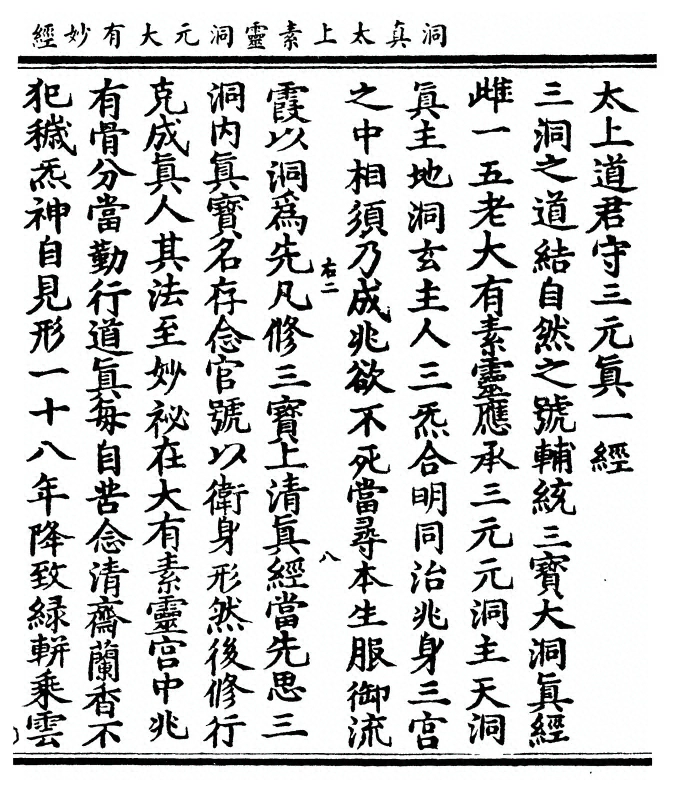 洞真太上素靈洞元大有妙經
太上道君守三元眞一經
三洞之道結自然之號輔統三寶大洞眞經
雌一五老大有素靈應承三元元洞主天洞
眞主地洞玄主人三炁合明同治兆身三宮
之中相須乃成兆欲不死當尋本生服御流
霞以洞爲先凡修三寶上清眞經當先思三
右二
八
洞内眞寶名存念官號以衛身形然後修行
克成眞人其法至妙祕在大有素靈宮中兆
有骨分當勤行道眞每自苦念清齋蘭香不
犯穢炁神自見形一十八年降致緑軿乘雲